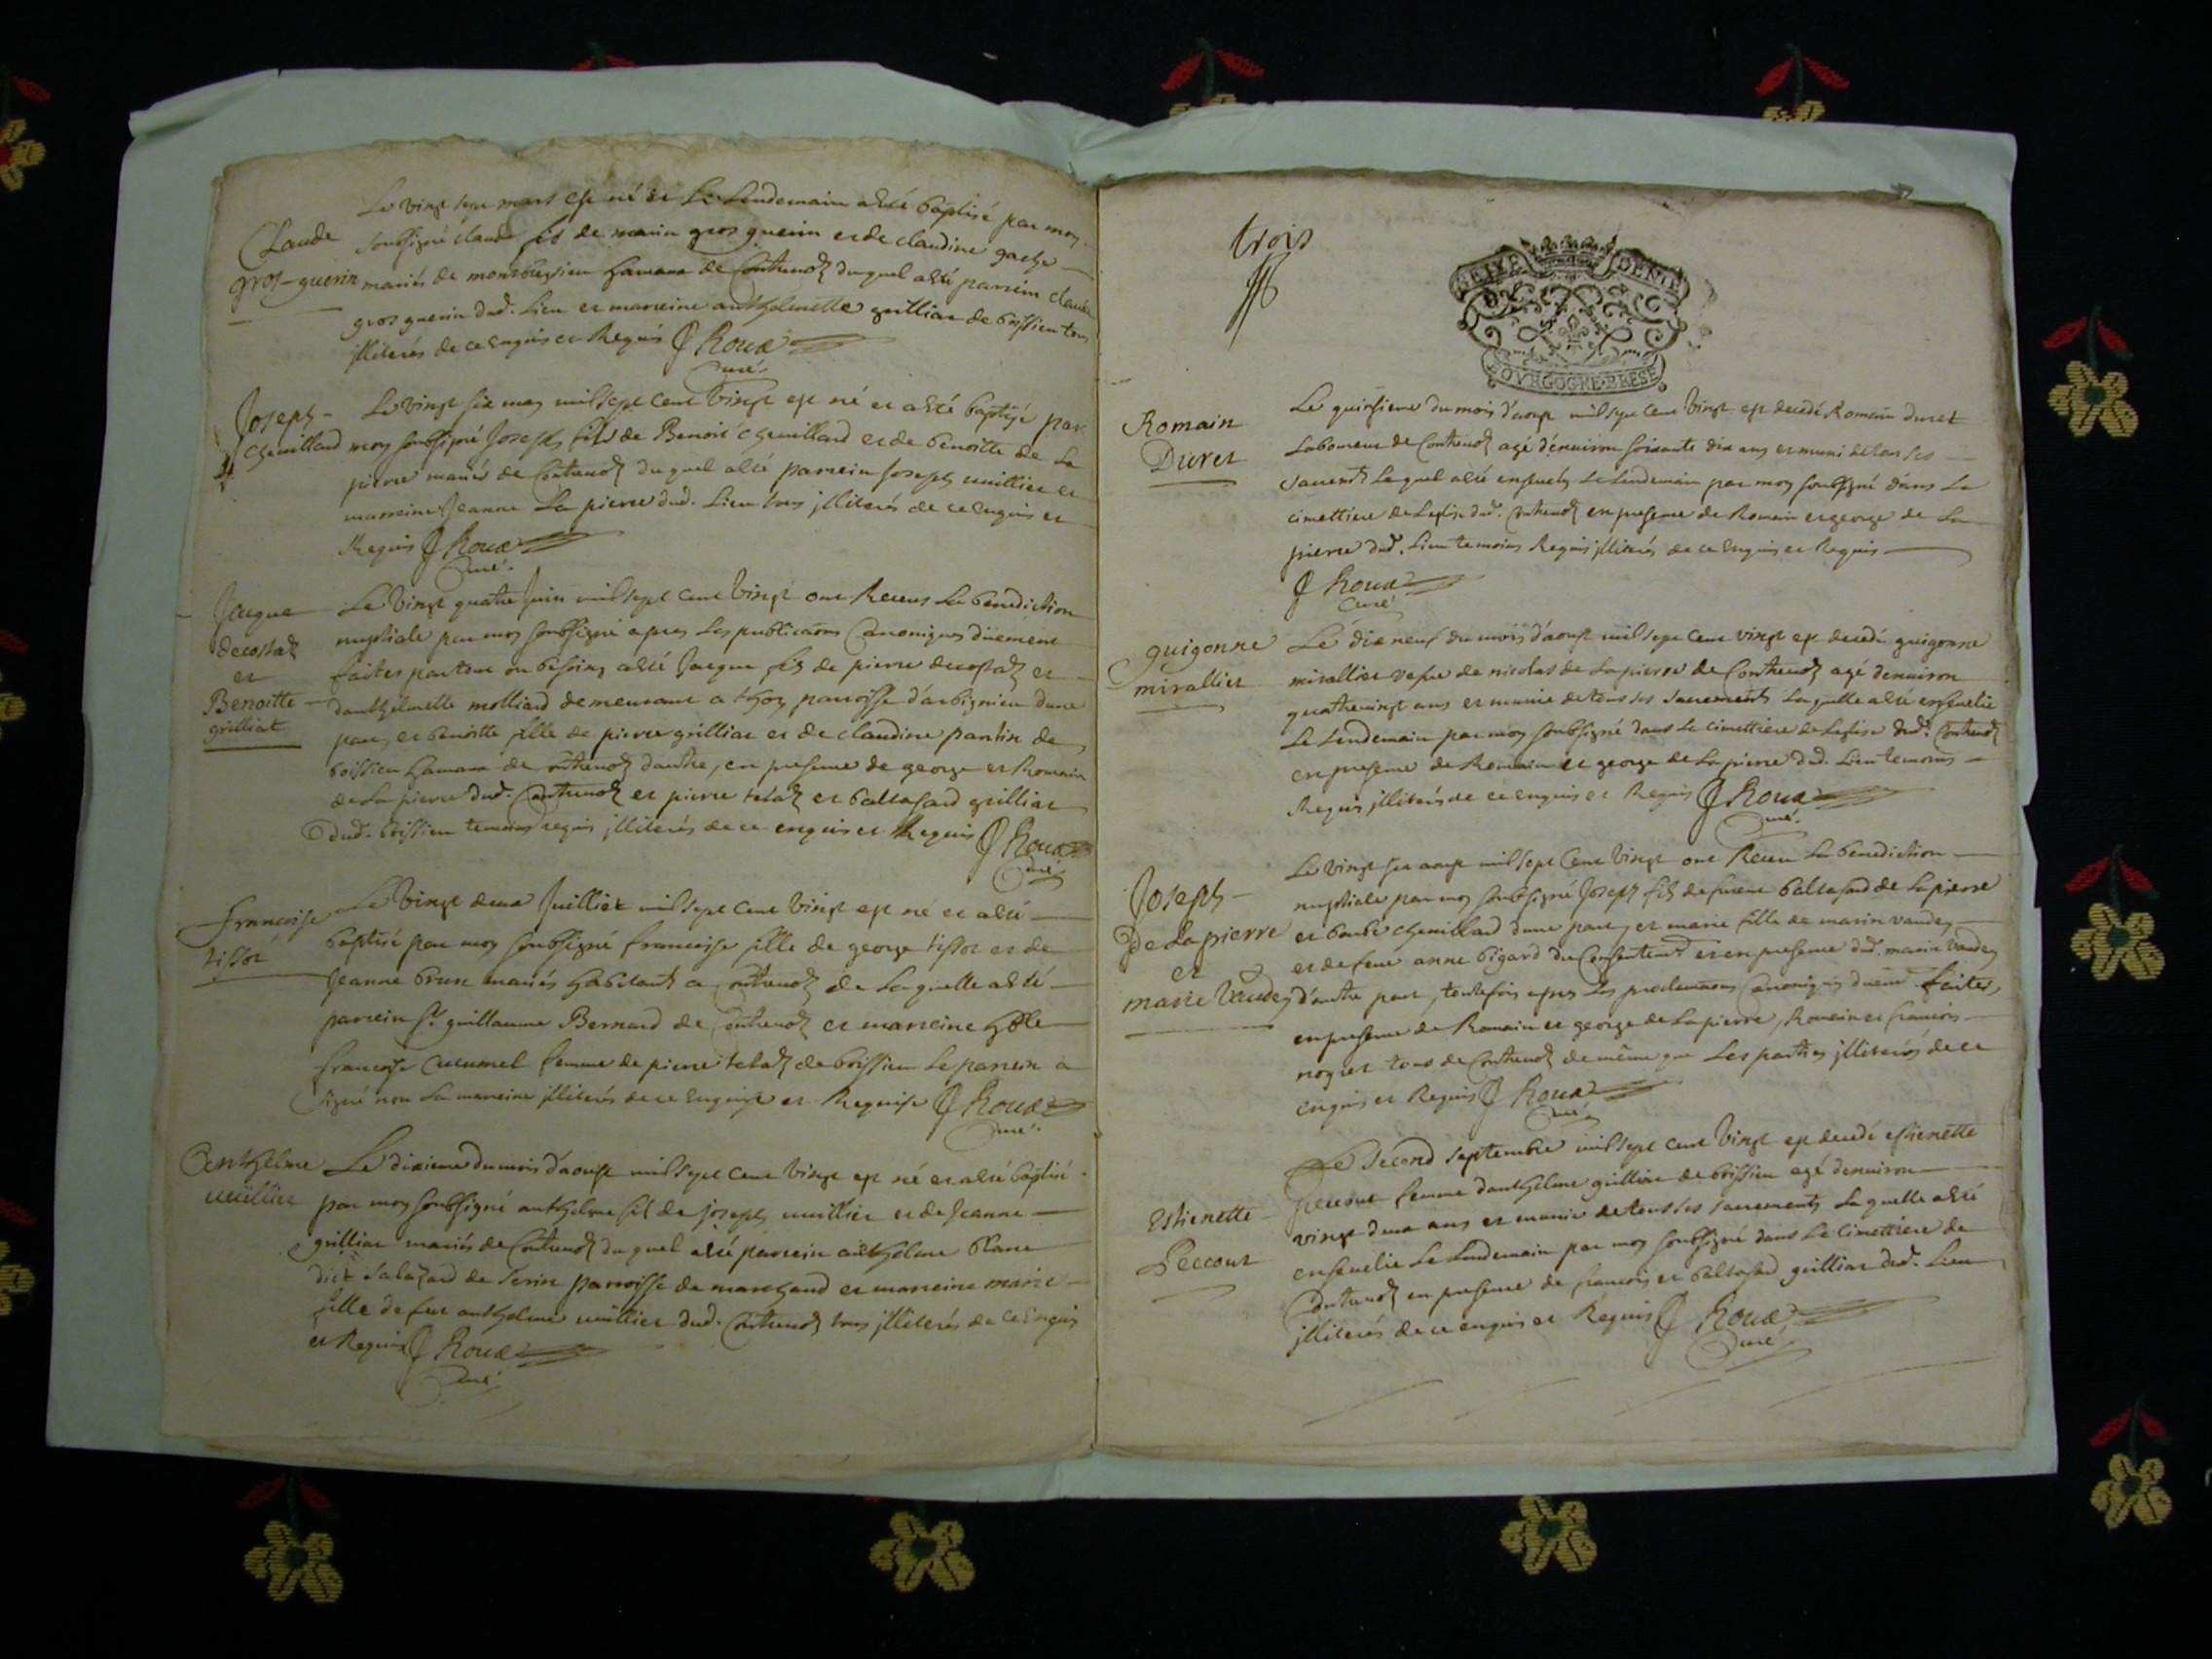 Le vingt sept mars est né et le lendemain a été baptisé par moy
Claude soubsigné claude fils de marin gros guerin et de claudine gache
gros-guerin mariés de hamaux de Contrevoz duquel a été parrein claude
gros guerin dud. lieu et marreine anthelmette grilliat de boissieu tous
illiterés de ce enquis et Requis J Roux
curé
Joseph Le vingt six may mil sept cent vingt est né et a été baptisé par
chevillard moy soubsigné Joseph fils de Benoit chevillard et de benoitte de La
pierre mariés de Contrevoz duquel a été parrein Joseph vuillier et
marreine Jeanne La pierre dud. Lieu tous illiterés de ce enquis et
Requis J Roux
curé
Jacque Le vingt quatre Juin mil sept cent vingt ont Receus La benediction
decostaz nuptiale par moy soubsigné apres Les publications Canoniques düement
et faites partout ou besoing a été Jacque fils de pierre decostaz et
Benoitte d'anthelmette molliard demeurant a thoy parroisse d'arbignieu d'une
grilliat part, et benoitte fille de pierre grilliat et de claudine pantin de
boissieu hamaux de Contrevoz d'autre, en presence de george et Romain
de La pierre dud. Contrevoz et pierre telaz et baltasard grilliat
dud. boissieu temoins requis illiterés de ce enquis et Requis J Roux
curé
francoise Le vingt deux Juilliet mil sept cent vingt est né et a été
tissot baptisé par moy soubsigné francoise fille de george tissot et de
Jeanne brun mariés habitants a Contrevoz de Laquelle a été
parrein Sr. guillaume Bernard de Contrevoz et marreine hble
francoise Cucumel femme de pierre telaz de boissieu Le parrein a
signé non La marreine illiterés de ce enquise et Requise J Roux
curé
anthelme Le dixieme du mois d'aoust mil sept cent vingt est né et a été baptisé
vuillier par moy soubsigné anthelme fils de joseph vuillier et de Jeanne
grilliat mariés de Contrevoz duquel a été parrein anthelme
dict de parroisse de marchand et marreine marie
fille de feu anthelme vuillier dud. Contrevoz tous illiterés de ce enquis
et Requis J Roux
curé
trois
BOVRGOGNE·BRESE
Romain Le quinsieme du mois d'aoust mil sept cent vingt est decedé Romain duret
Duret Laboureur de Contrevoz agé d'environ soixante dix ans et muni de tous ses
sacrents Lequel a été ensevely Le Lendemain par moy soubsigné dans Le
cimettiere de Leglise dud. Contrevoz en presence de Romain et george de La
pierre dud. Lieu temoins Requis illiterés de ce enquis et Requis
J Roux
Curé
guigonne Le dix neuf du mois d'aoust mil sept cent vingt est decedé guigonne
mirallier mirallier vefve de nicolas de Lapierre de Contrevoz agé denviron
quatrevingt ans et munie de tous ses sacrements Laquelle a été ensevelie
Le Lendemain par moy soubsigné dans Le cimettiere de Leglise dud. Contrevoz
en presence de Romain et george de La pierre dud. Lieu temoins
Requis illiterés de ce enquis et Requis J Roux
curé
Joseph Le vingt aoust mil sept cent vingt ont Receu La benediction
De Lapierre nuptiale par moy soubsigné Joseph fils de baltasard de Lapierre
et et chevillard d'une part, et marie fille de marin vaudey
marie vaudey et de feue anne bigard du Consentemt et en presence dud. marin vaudey
d'autre part, toutefois apres Les proclamations Canoniques duemt faites,
en presence de Romain et george de Lapierre, Romain et francois
noguet tous de Contrevoz de même que Les parties illiterés de ce
enquis et Requis J Roux
curé
Le second septembre mil sept cent vingt est decedé estienette
Estienette peccout femme d'anthelme grilliat de boissieu agé denviron
Peccout vingt deux ans et munie de tous ses sacrements Laquelle a été
ensevelie Le Lendemain par moy soubsigné dans Le cimettiere de
Contrevoz en presence de francois et baltasard grilliat dud. Lieu
illiterés de ce enquis et Requis J Roux
curé